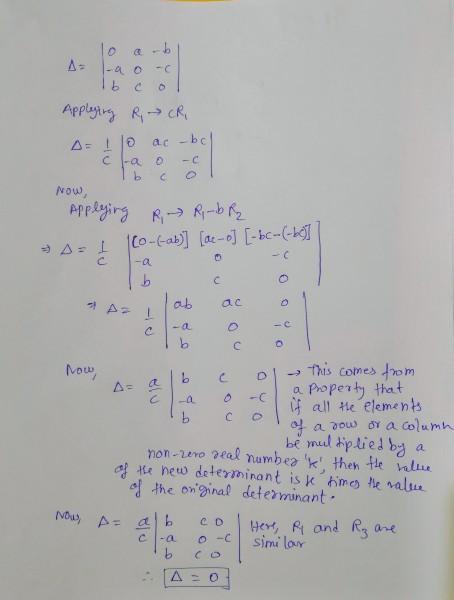 Δ = | 0 a -b |
| -a 0 -c |
| b c 0 |
Applying R₁ → cR₁
Δ = 1/c | 0 ac -bc |
| -a 0 -c |
| b c 0 |
Now,
Applying R₁ → R₁-bR₂
⇒ Δ = 1/c | [0-(-ab)] [ac-0] [-bc-(-bc)] |
| -a 0 -c |
| b c 0 |
⇒ Δ = 1/c | ab ac 0 |
| -a 0 -c |
| b c 0 |
Now,
Δ = a/c | b c 0 | → This comes from
| -a 0 -c | a property that
| b c 0 | if all the elements
of a row or a column
be multiplied by a
non-zero real number 'k', then the value
of the new determinant is k times the value
of the original determinant.
Now, Δ = a/c | b c 0 | Here, R₁ and R₃ are
| -a 0 -c | similar
| b c 0 |
∴ Δ = 0